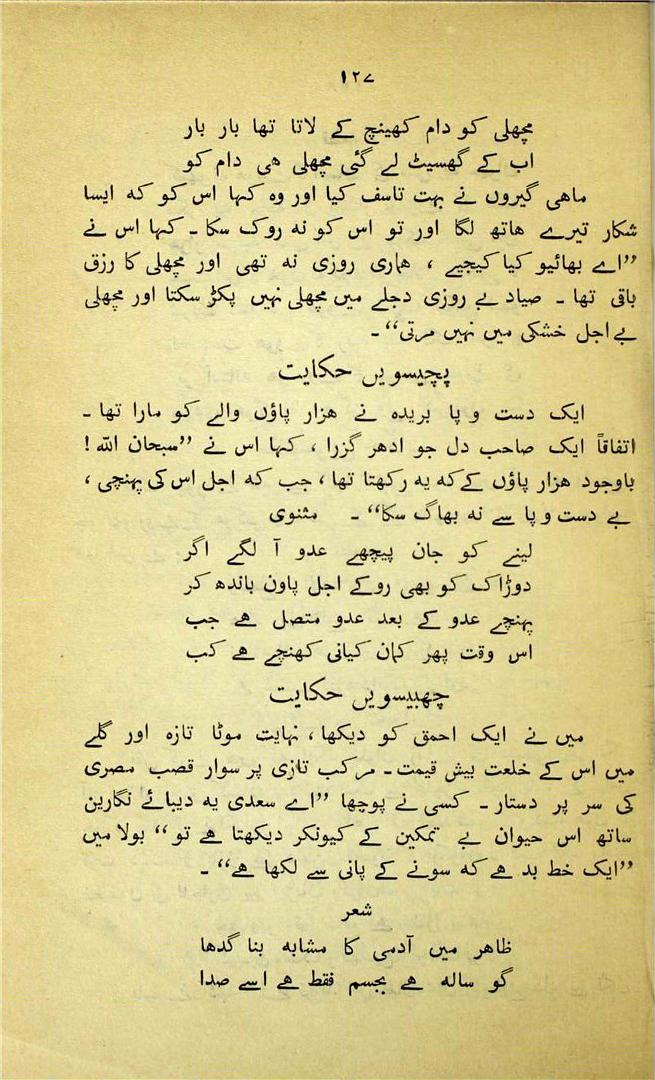 ۱۲۷
مچھلی کو دام کھینچ کے لاتا تھا بار بار
اب کے گھسیٹ لے گئی مچھلی ھی دام کو
ماھی گیروں نے بہت تاسف کیا اور وہ کہا اس کو کہ ایسا
شکار تیرے ھاتھ لگا اور تو اس کو نہ روک سکا ۔ کہا اس نے
”اے بھائیو کیا کیجیے ، ھماری روزی نہ تھی اور مچھلی کا رزق
باقی تھا ۔ صیاد بے روزی دجلے میں مچھلی نہیں پکڑ سکتا اور مچھلی
بے اجل خشکی میں نہیں مرتی“ ۔
پچیسویں حکایت
ایک دست و پا بریدہ نے ھزار پاؤں والے کو مارا تھا ۔
اتفاقاً ایک صاحب دل جو ادھر گزرا ، کہا اس نے ”سبحان اللہ !
باوجود ھزار پاؤں کے کہ یہ رکھتا تھا ، جب کہ اجل اس کی پہنچی ،
بے دست و پا سے نہ بھاگ سکا“ ۔ مثنوی
لینے کو جان پیچھے عدو آ لگے اگر
دوڑاک کو بھی روکے اجل پاون باندھ کر
پہنچے عدو کے بعد عدو متصل ھے جب
اس وقت پھر کمان کیانی کھنچے ھے کب
چھبیسویں حکایت
میں نے ایک احمق کو دیکھا ، نہایت موٹا تازہ اور گلے
میں اس کے خلعت بیش قیمت ۔ مرکب تازی پر سوار قصب مصری
کی سر پر دستار ۔ کسی نے پوچھا ”اے سعدی یہ دیبائے نگارین
ساتھ اس حیوان بے تمکین کے کیونکر دیکھتا ھے تو“ بولا میں
”ایک خط بد ھے کہ سونے کے پانی سے لکھا ھے“ ۔
شعر
ظاھر میں آدمی کا مشابہ بنا گدھا
گو سالہ ھے بجسم فقط ھے اسے صدا